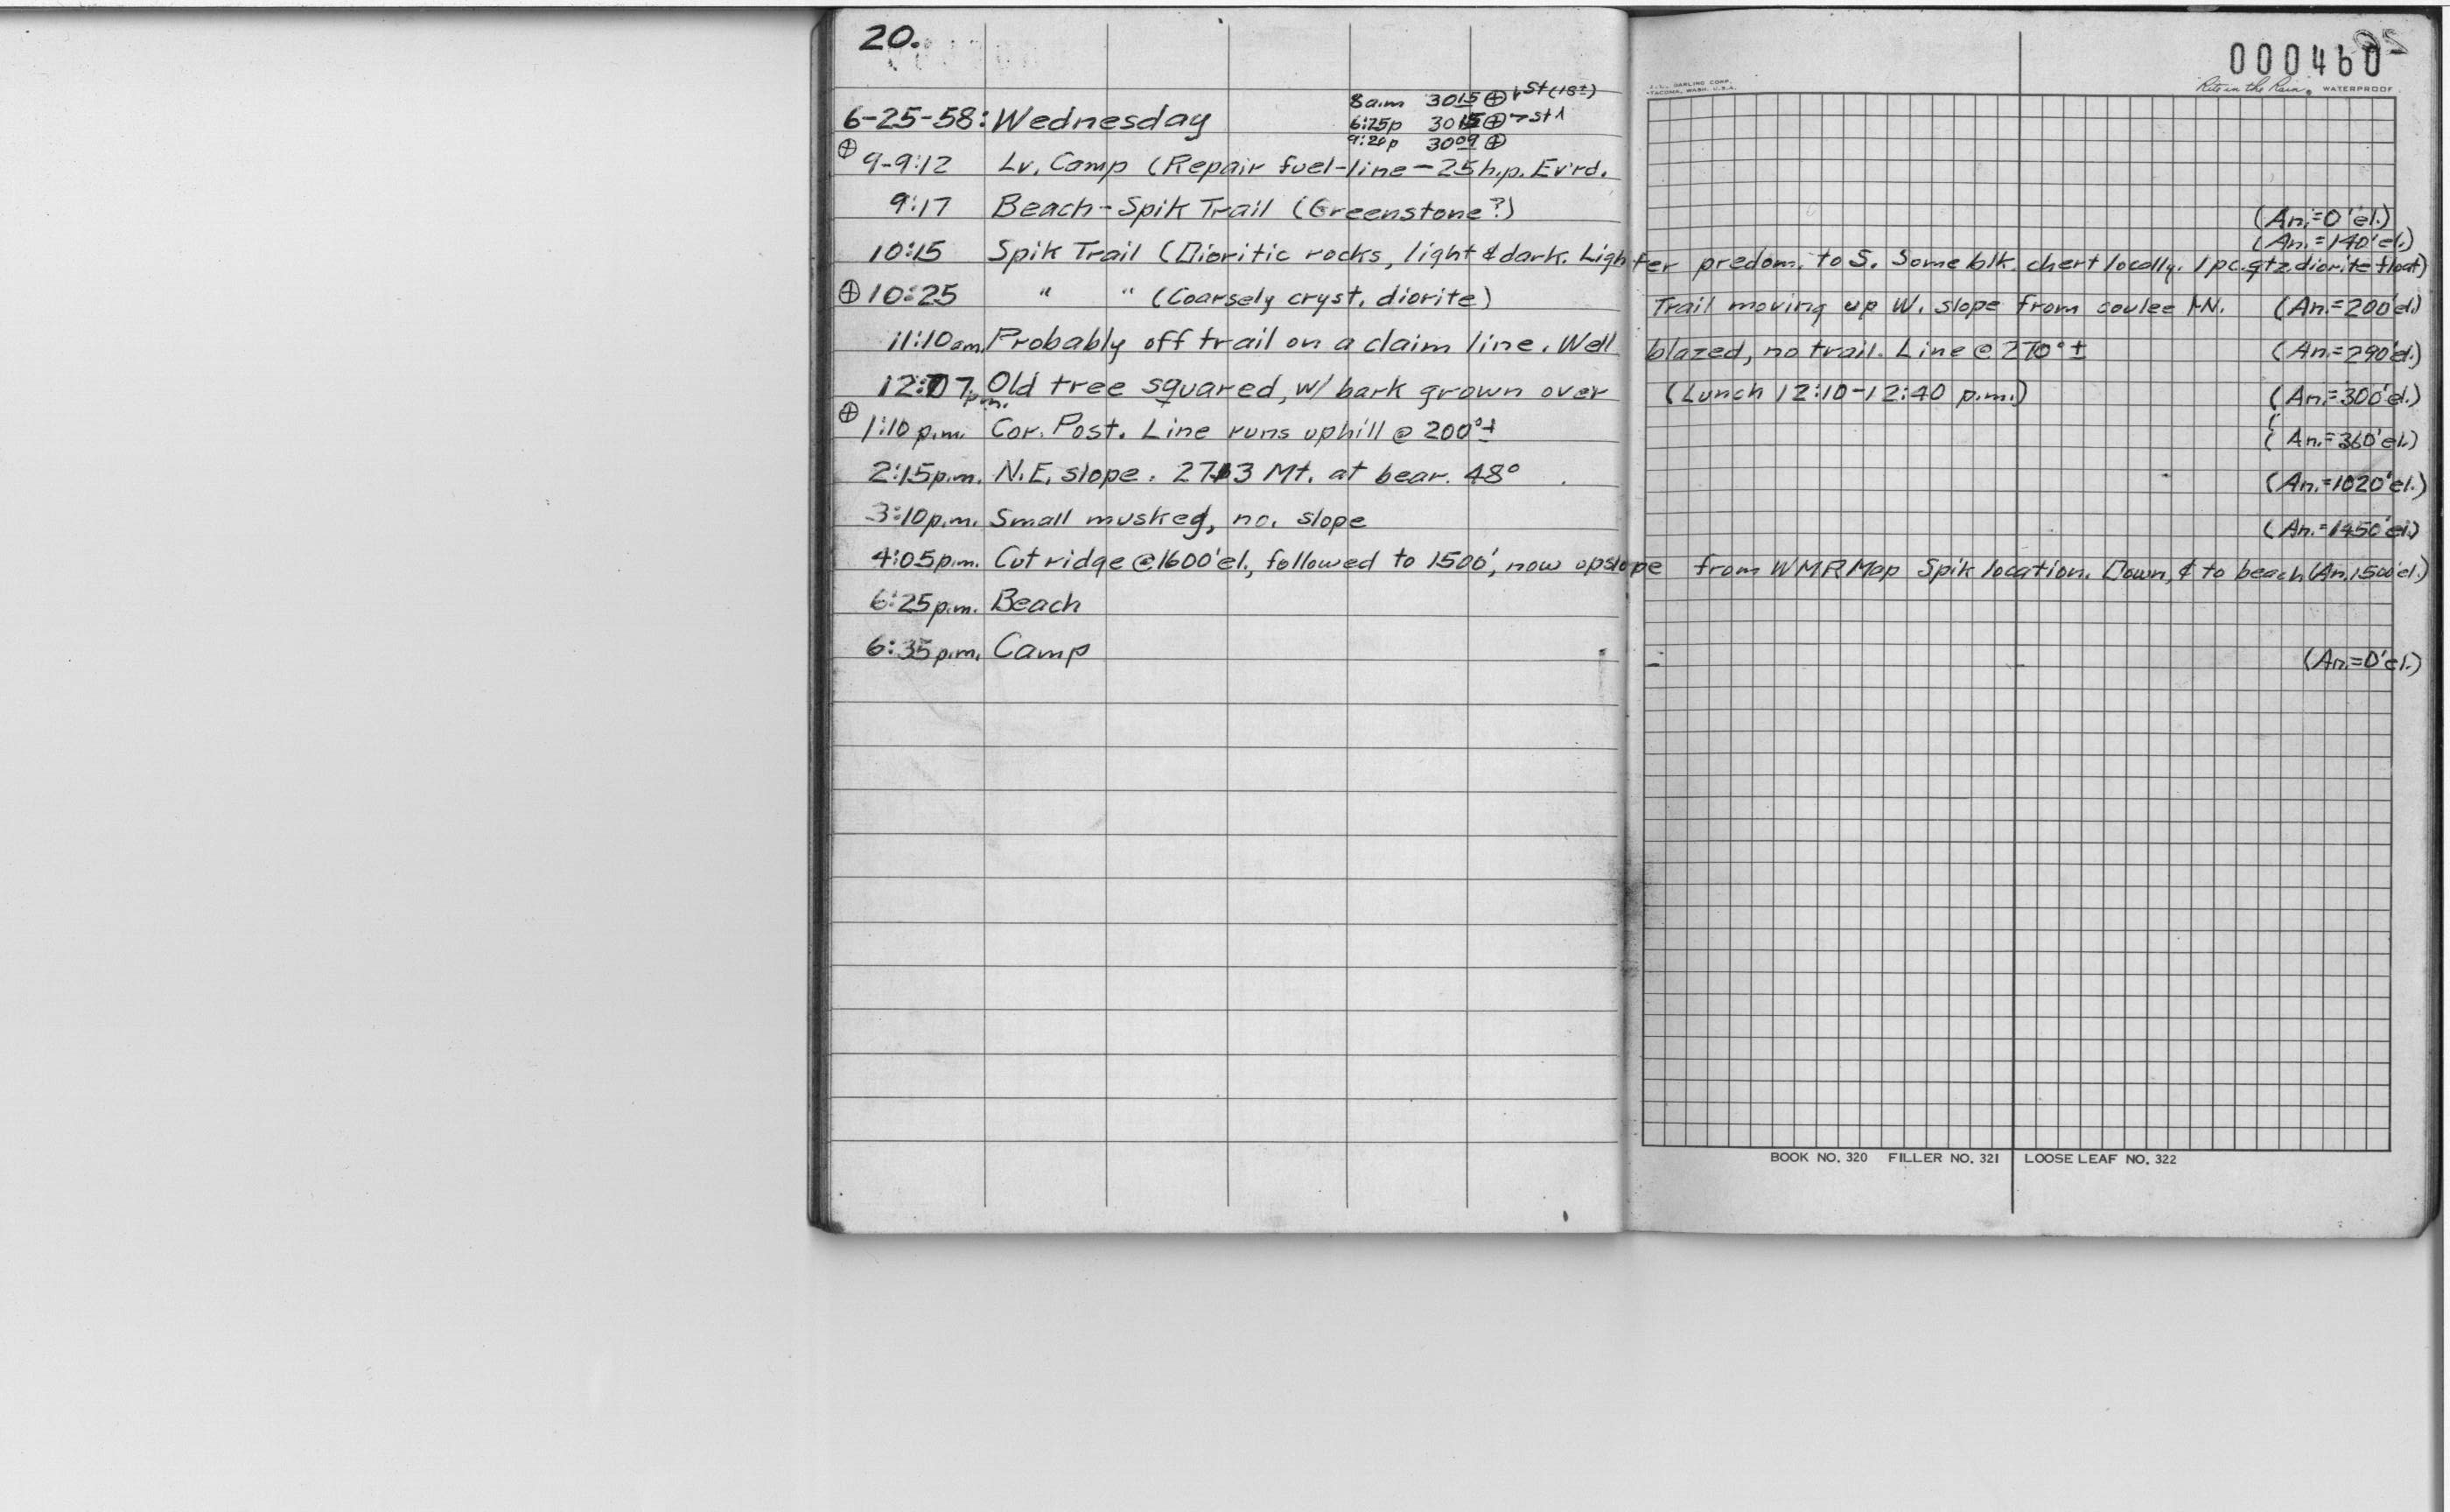 20.
000460
J. L. DARLING CORP.
TACOMA, WASH. U.S.A.
Rite in the Rain WATERPROOF
8 a.m 3015 ⊕ St (18±)
6-25-58: Wednesday 6:25p 3015 ⊕ St
9:20p 3009 ⊕
⊕ 9-9:12 Lv. Camp (Repair fuel-line - 25 h.p. Ev'rd.
9:17 Beach - Spik Trail (Greenstone?) (An.=0'el.)
(An.=140'el.)
10:15 Spik Trail (Dioritic rocks, light & dark. Lighter predom. to S. Some blk. chert locally. 1 pc. qtz. diorite float)
⊕ 10:25 " " (Coarsely cryst. diorite) Trail moving up W. slope from coulee N. (An.=200'el.)
11:10 am. Probably off trail on a claim line. Well blazed, no trail. Line @ 270°± (An.=290'el.)
12:07 p.m. Old tree squared, w/ bark grown over (Lunch 12:10-12:40 p.m.) (An.=300'el.)
⊕ 1:10 p.m. Cor. Post. Line runs uphill @ 200°± (An.=360'el.)
2:15 p.m. N.E. slope. 2713 Mt. at bear. 48° (An.=1020'el.)
3:10 p.m. Small muskeg, no. slope (An.=1450'el.)
4:05 p.m. Cut ridge @ 1600'el., followed to 1500', now upslope from WMR Map Spik location. Down, & to beach (An. 1500'el.)
6:25 p.m. Beach
6:35 p.m. Camp (An.=0'el.)
BOOK NO. 320 FILLER NO. 321 LOOSE LEAF NO. 322